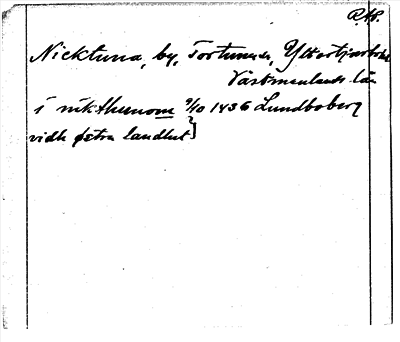 RAp.
Nicktuna, by, Tortuna sn, Yttertjurbo hd
Västmanlands län
i nikthunom 9/10 1436 Lundboberg
vidh østra landhut]